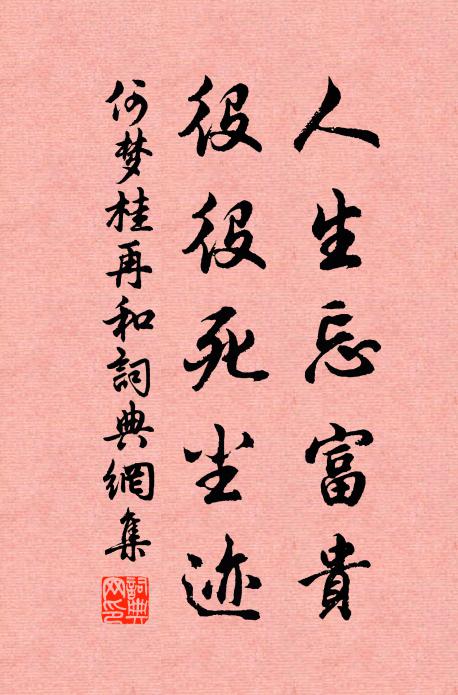 人生忘富貴
役役死尘迹
何梦桂再和詞典網集
詞典
网印